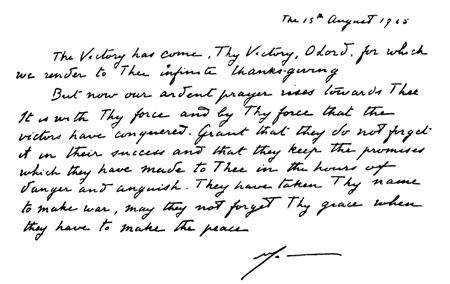 The 15th August 1945
The Victory has come, Thy Victory, O Lord, for which
we render to Thee infinite thanks-giving
But now our ardent prayer rises towards Thee
It is with Thy force and by Thy force that the
victors have conquered. Grant that they do not forget
it in their success and that they keep the promises
which they have made to Thee in the hours of
danger and anguish. They have taken Thy name
to make war, may they not forget Thy grace when
they have to make the peace